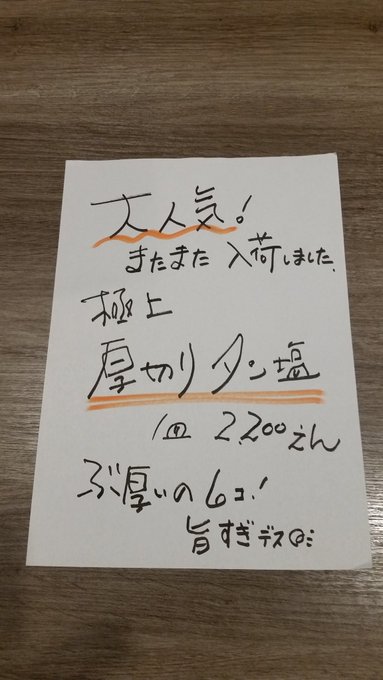 大人気!
またまた 入荷しました。
極上
厚切り タン塩
1皿 2,200えん
ぶ厚いの6コ!
旨すぎデス